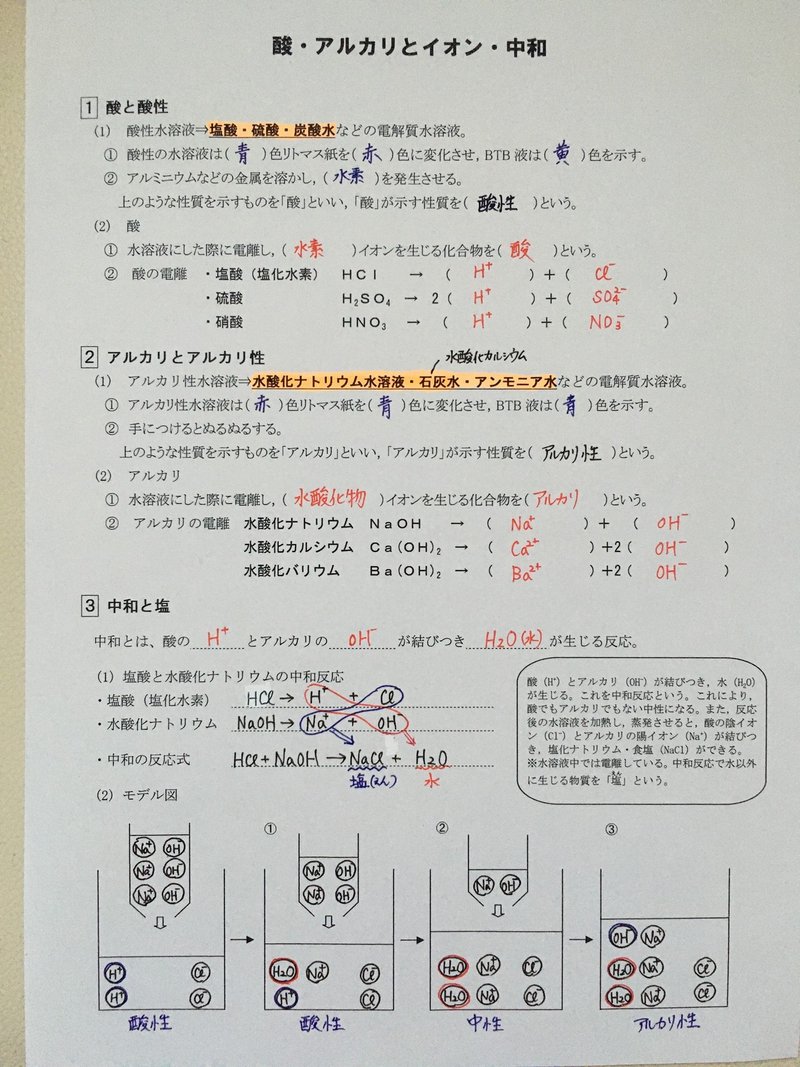 酸・アルカリとイオン・中和
1 酸と酸性
(1) 酸性水溶液⇒塩酸・硫酸・炭酸水などの電解質水溶液。
① 酸性の水溶液は(青)色リトマス紙を(赤)色に変化させ,BTB液は(黄)色を示す。
② アルミニウムなどの金属を溶かし,(水素)を発生させる。
上のような性質を示すものを「酸」といい,「酸」が示す性質を(酸性)という。
(2) 酸
① 水溶液にした際に電離し,(水素)イオンを生じる化合物を(酸)という。
② 酸の電離 ・塩酸(塩化水素) HCl → (H⁺)+(Cl⁻)
・硫酸 H₂SO₄ → 2(H⁺)+(SO₄²⁻)
・硝酸 HNO₃ → (H⁺)+(NO₃⁻)
2 アルカリとアルカリ性
水酸化カルシウム
(1) アルカリ性水溶液⇒水酸化ナトリウム水溶液・石灰水・アンモニア水などの電解質水溶液。
① アルカリ性水溶液は(赤)色リトマス紙を(青)色に変化させ,BTB液は(青)色を示す。
② 手につけるとぬるぬるする。
上のような性質を示すものを「アルカリ」といい,「アルカリ」が示す性質を(アルカリ性)という。
(2) アルカリ
① 水溶液にした際に電離し,(水酸化物)イオンを生じる化合物を(アルカリ)という。
② アルカリの電離 水酸化ナトリウム NaOH → (Na⁺)+(OH⁻)
水酸化カルシウム Ca(OH)₂ → (Ca²⁺)+2(OH⁻)
水酸化バリウム Ba(OH)₂ → (Ba²⁺)+2(OH⁻)
3 中和と塩
中和とは、酸の H⁺ とアルカリの OH⁻ が結びつき H₂O(水) が生じる反応。
(1) 塩酸と水酸化ナトリウムの中和反応
・塩酸(塩化水素) HCl → H⁺ + Cl⁻
・水酸化ナトリウム NaOH → Na⁺ + OH⁻
・中和の反応式 HCl + NaOH → NaCl + H₂O
塩(えん) 水
酸(H⁺)とアルカリ(OH⁻)が結びつき,水(H₂O)
が生じる。これを中和反応という。これにより,
酸でもアルカリでもない中性になる。また,反応
後の水溶液を加熱し,蒸発させると,酸の陰イオ
ン(Cl⁻)とアルカリの陽イオン(Na⁺)が結びつ
き,塩化ナトリウム・食塩(NaCl)ができる。
※水溶液中では電離している。中和反応で水以外
に生じる物質を「塩」という。
(2) モデル図
① ② ③
Na⁺ OH⁻
Na⁺ OH⁻
Na⁺ OH⁻
H⁺ Cl⁻
H⁺ Cl⁻
酸性
Na⁺ OH⁻
Na⁺ OH⁻
H₂O Na⁺ Cl⁻
H⁺ Cl⁻
酸性
Na⁺ OH⁻
H₂O Na⁺ Cl⁻
H₂O Na⁺ Cl⁻
中性
OH⁻ Na⁺
H₂O Na⁺ Cl⁻
H₂O Na⁺ Cl⁻
アルカリ性